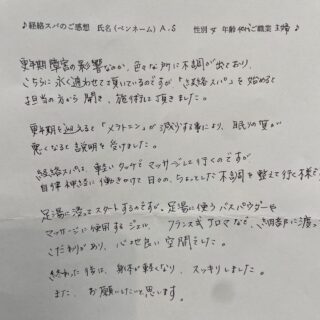 ♪経絡スパのご感想 氏名(ペンネーム) A.S 性別 女 年齢 ご職業 主婦 ♪
更年期障害の影響なのか、色々な所に不調が出ており、
こちらに永く通わせて頂いているのですが「経絡スパ」を始めると
担当の方から聞き、施術して頂きました。
更年期を迎えると「メラトニン」が減少する事により、眠りの質が
悪くなると説明を受けました。
経絡スパは、軽いタッチでマッサージして行くのですが
自律神経に働きかけて日々の、ちょっとした不調を整えて行く様で
足湯に浸ってスタートするのですが、足湯に使うバスパウダーや
マッサージに使用するジェル、フランス式アロマなど、細部に渡って
こだわりがあり、心地良い空間でした。
終わった後は、身体が軽くなり、スッキリしました。
また、お願いしたいと思います。